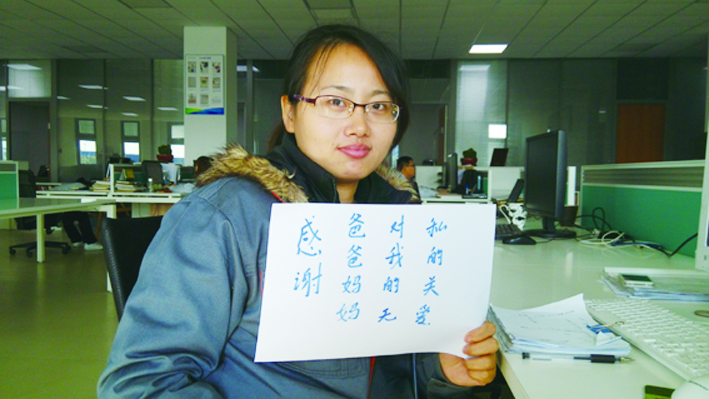 感谢
爸爸妈妈
对我的无
私的关爱